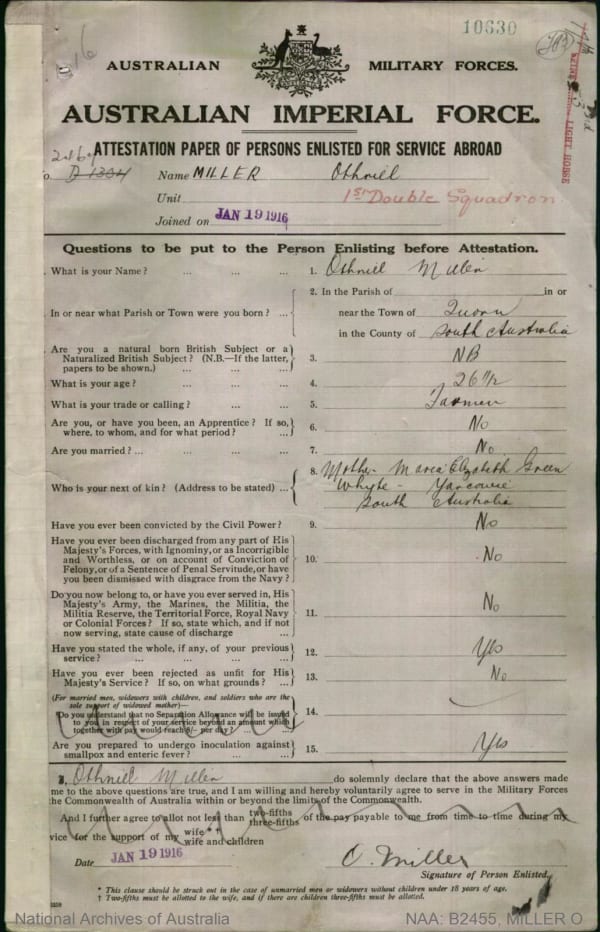 10630
AUSTRALIAN MILITARY FORCES.
AUSTRALIAN IMPERIAL FORCE.
ATTESTATION PAPER OF PERSONS ENLISTED FOR SERVICE ABROAD
Name MILLER Othniell
Unit 1st Double Squadron
Joined on JAN 19 1916
LIGHT HORSE
Questions to be put to the Person Enlisting before Attestation.
What is your Name? ... ... ... 1. Othniell Miller
2. In the Parish of in or
In or near what Parish or Town were you born? ... near the Town of Quorn
in the County of South Australia
Are you a natural born British Subject or a
Naturalized British Subject? (N.B.—If the latter, 3. NB
papers to be shown.) ... ...
What is your age? ... ... ... 4. 26
What is your trade or calling? ... ... 5. Farmer
Are you, or have you been, an Apprentice? If so,
where, to whom, and for what period? ... 6. No
Are you married? ... ... ... ... 7. No
8. Mother Maria Elizabeth Green
Who is your next of kin? (Address to be stated) ... Whyte - Yarcowie
South Australia
Have you ever been convicted by the Civil Power? 9. No
Have you ever been discharged from any part of His
Majesty's Forces, with Ignominy, or as Incorrigible
and Worthless, or on account of Conviction of 10. No
Felony, or of a Sentence of Penal Servitude, or have
you been dismissed with disgrace from the Navy?
Do you now belong to, or have you ever served in, His
Majesty's Army, the Marines, the Militia, the
Militia Reserve, the Territorial Force, Royal Navy 11. No
or Colonial Forces? If so, state which, and if not
now serving, state cause of discharge ...
Have you stated the whole, if any, of your previous
service? ... ... ... ... 12. Yes
Have you ever been rejected as unfit for His
Majesty's Service? If so, on what grounds? ... 13. No
(For married men, widowers with children, and soldiers who are the
sole support of widowed mother)—
Do you understand that no Separation Allowance will be issued 14.
to you in respect of your service beyond an amount which
together with pay would reach 8/- per day? ... ...
Are you prepared to undergo inoculation against
smallpox and enteric fever? ... ... 15. Yes
I, Othniell Miller do solemnly declare that the above answers made
me to the above questions are true, and I am willing and hereby voluntarily agree to serve in the Military Forces
the Commonwealth of Australia within or beyond the limits of the Commonwealth.
And I further agree to allot not less than two-fifths three-fifths of the pay payable to me from time to time during my
vice for the support of my wife * † wife and children
Date JAN 19 1916 O. Miller
Signature of Person Enlisted.
* This clause should be struck out in the case of unmarried men or widowers without children under 18 years of age.
† Two-fifths must be allotted to the wife, and if there are children three-fifths must be allotted.
National Archives of Australia NAA: B2455, MILLER O